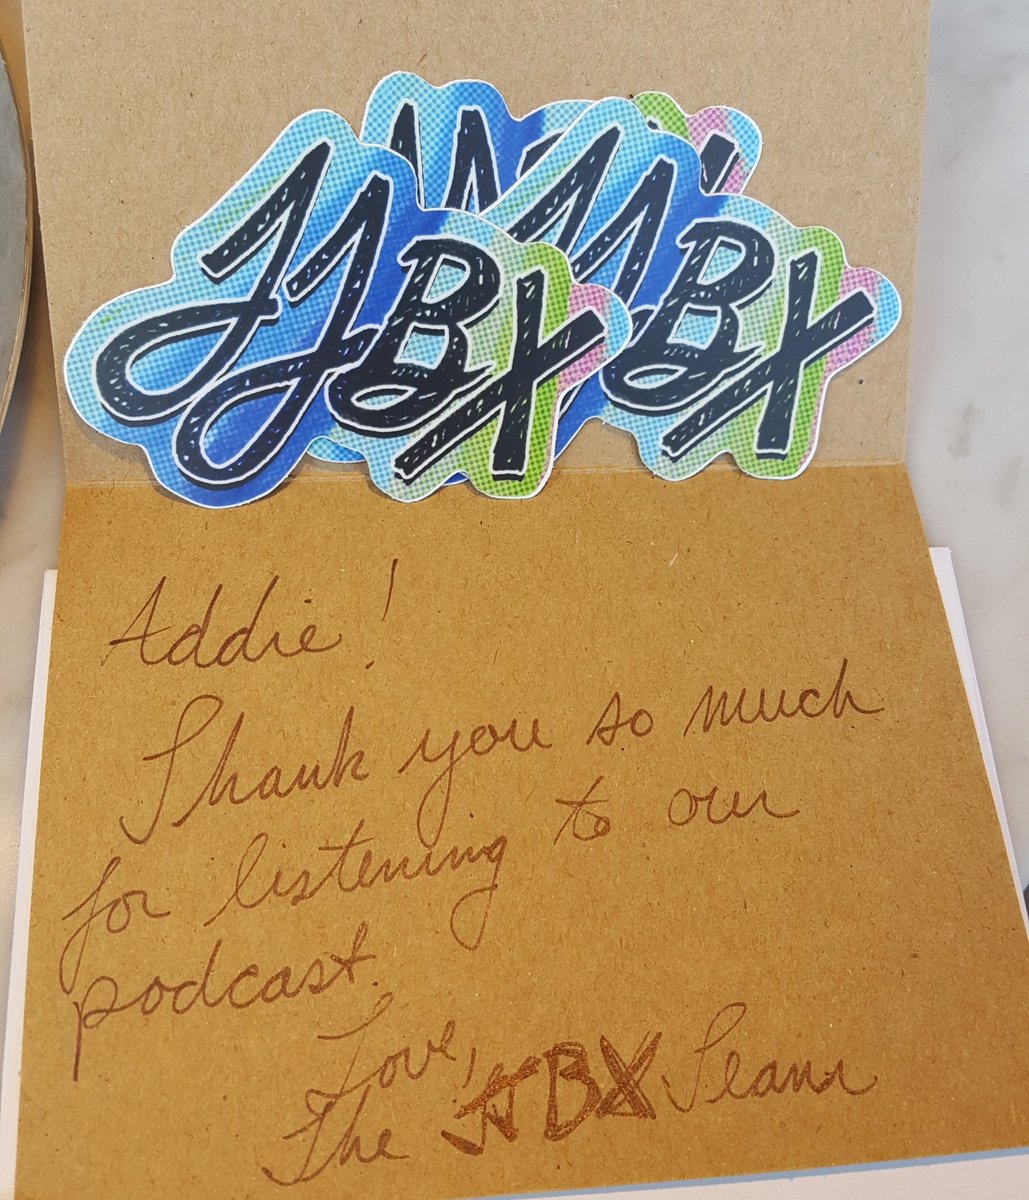 JJBX
BX
Addie!
Thank you so much
for listening to our
podcast.
Love,
The JJBX Team